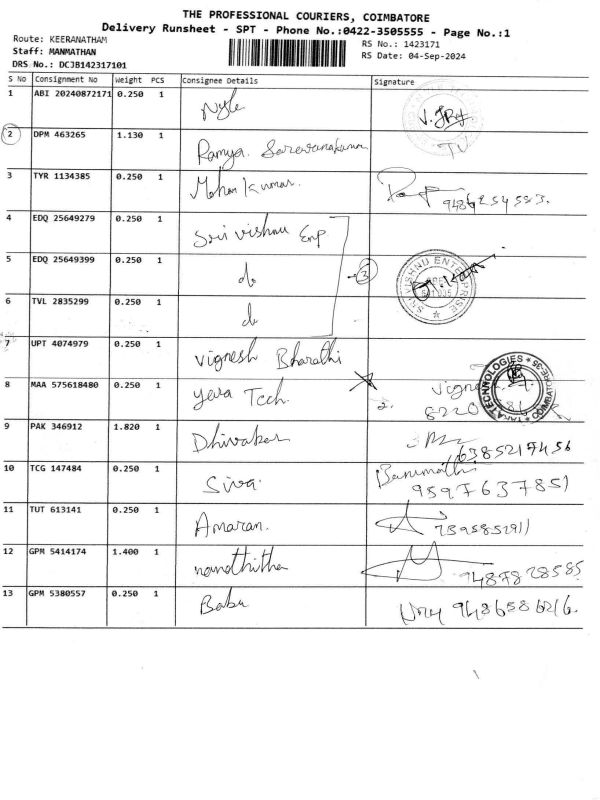 THE PROFESSIONAL COURIERS, COIMBATORE
Delivery Runsheet - SPT - Phone No.:0422-3505555 - Page No.:1
Route: KEERANATHAM
Staff: MANMATHAN
DRS No.: DCJB142317101
RS No.: 1423171
RS Date: 04-Sep-2024
S No Consignment No Weight PCS Consignee Details Signature
1 ABI 20240872171 0.250 1 Nyle
2 DPM 463265 1.130 1 Ramya. Saravanakumar
3 TYR 1134385 0.250 1 Mohan Kumar.
4 EDQ 25649279 0.250 1 Sri vishnu Enp
5 EDQ 25649399 0.250 1 do 3 VISHNU ENTERPRISE
6 TVL 2835299 0.250 1 do
7 UPT 4074979 0.250 1 Vignesh Bharathi
8 MAA 575618480 0.250 1 yera Tech. 2. TECHNOLOGIES
9 PAK 346912 1.820 1 Dhivakar 6385217456
10 TCG 147484 0.250 1 Siva. Banumathi 9597637851
11 TUT 613141 0.250 1 Amaran.
12 GPM 5414174 1.400 1 nandhitha 9487828585
13 GPM 5380557 0.250 1 Babu 9486586216.